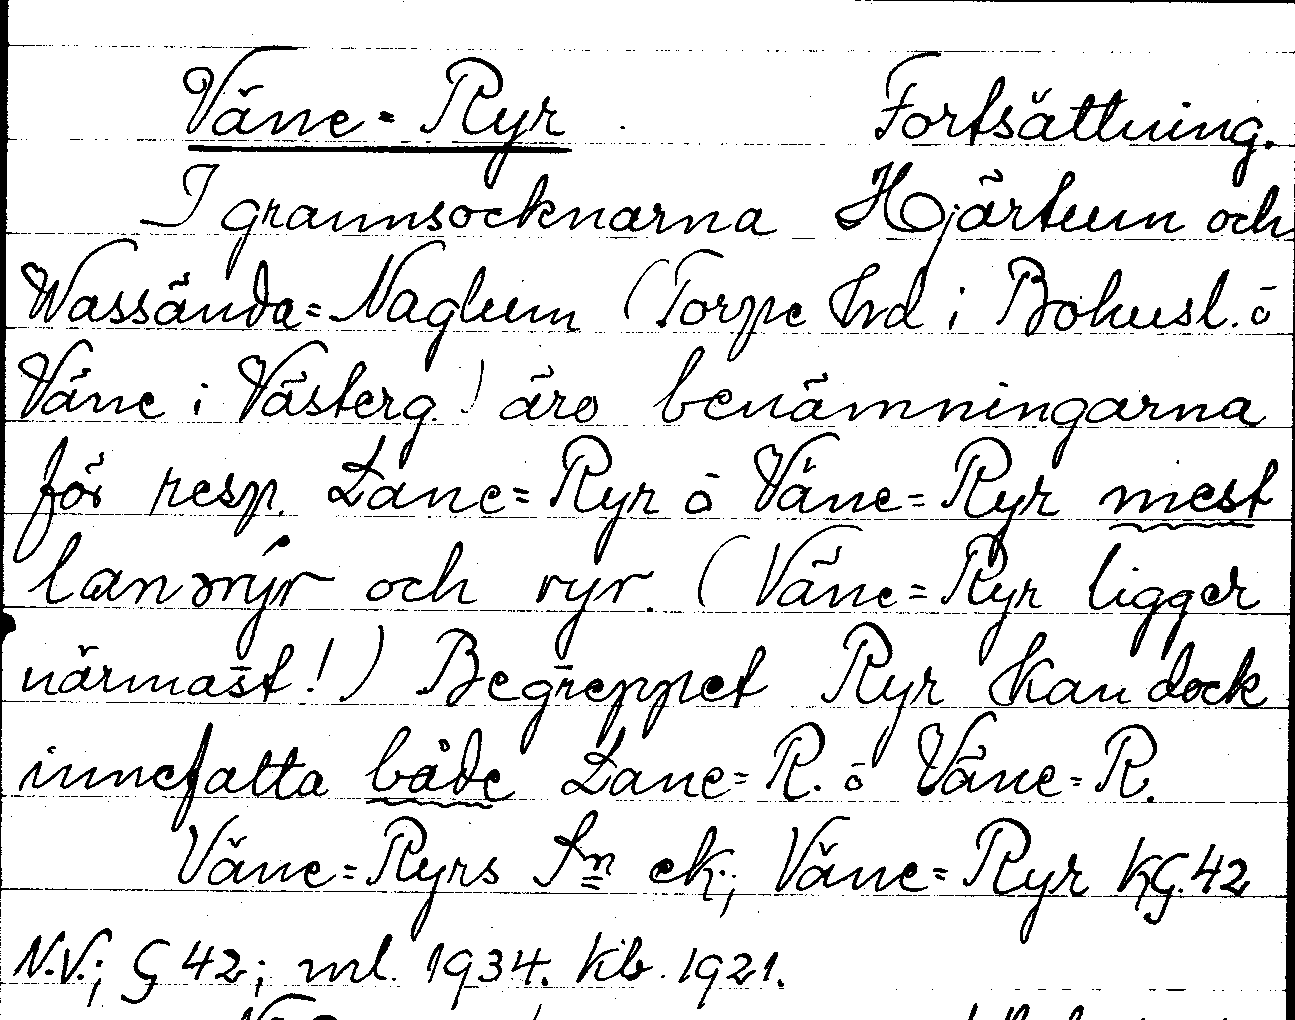 Väne-Ryr. Fortsättning.
I grannsocknarna Hjärtum och
Wassända=Naglum (Torpe hd i Bohusl. o
Väne i Västerg.) äro benämningarna
för resp. Lane=Ryr o Väne=Ryr mest
och ryr. (Väne=Ryr ligger
närmast!) Begreppet Ryr kan dock
innefatta både Lane=R. o Väne=R.
Väne=Ryrs Sn ek; Väne=Ryr KG.42
N.V.; G 42; ml. 1934. Kb. 1921.